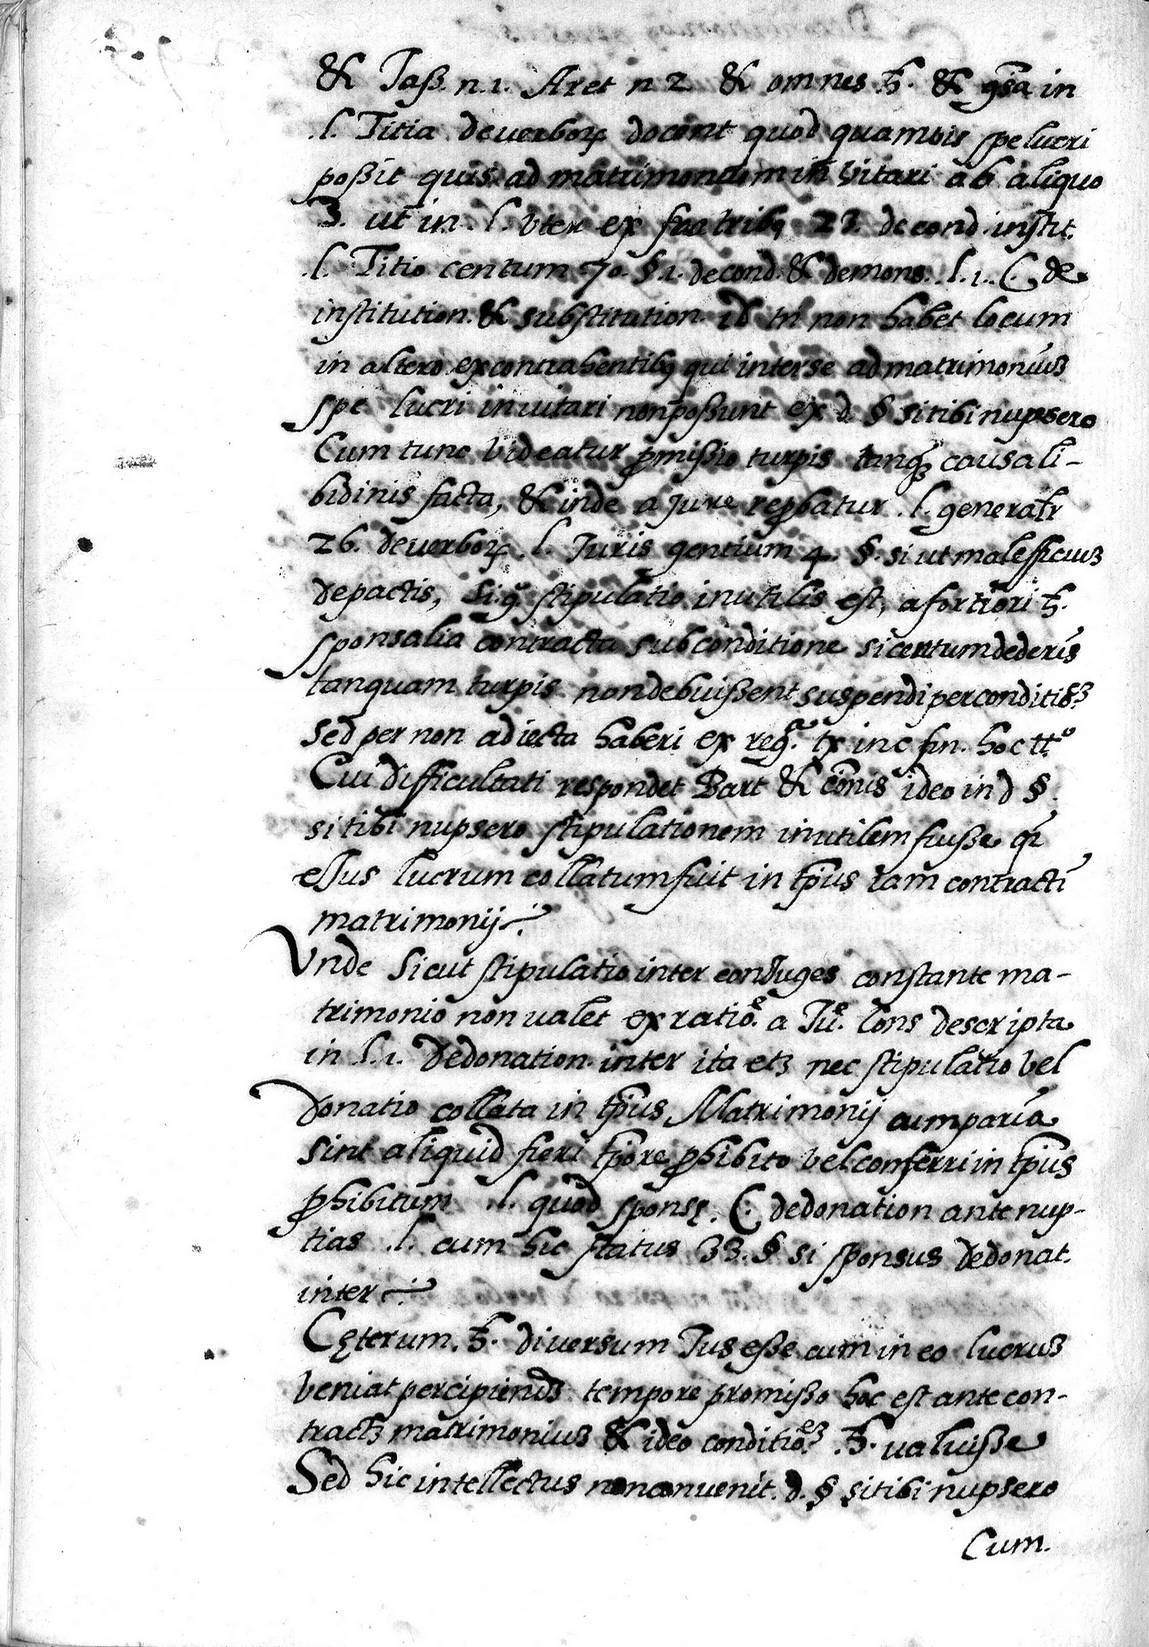 & Jaß. n. 1. Aret n 2 & omnes ħ. & glsa in
l. Titia de verbor docent quod quamvis spe lucri
poßit quis ad matrimonium invitari ab aliquo
3. ut in. l. Vter ex fratribq 23. de cond. instit.
l. Titio centum 70. §. 1. de cond. & demons. l. 1. C. de
institution. & substitution. id tn̄ non habet locum
in altero ex contrahentibq qui inter se ad matrimoniuȝ
spe lucri invitari non poßunt ex d. § si tibi nupsero
Cum tunc Videatur ꝓmißio turpis tanqȝ causa li-
bidinis facta, & inde a jure reꝓbatur. l. generalr̄
26. de verbor. l. Juris gentium 4. §. si ut malefficiuȝ
de pactis, Si g̊ stipulatio inutilis est, a fortiori ħ.
sponsalia contracta sub conditione si centum dederis
tanquam turpis non debuißent suspendi per conditioēȝ
Sed per non adiecta haberi ex regª. tx in c fin. hoc ttº
Cui difficultati respondet Bart & cōnis ideo in d §.
si tibi nupsero stipulationem inutilem fuiße qr̄
eJus lucrum collatum fuit in tp̄us iam contracti
matrimonij
Vnde Sicut stipulatio inter conJuges constante ma-
trimonio non valet ex ratioē. a Juē. Cons descripta
in l. 1. de donation. inter ita etȝ nec stipulatio vel
donatio collata in tp̄us Matrimonij cum paria
sint aliquid fieri tp̄ore ꝓhibito vel conferri in tp̄us
ꝓhibitum l. quod spons. C. de donation ante nup-
tias l. cum hic status 33. § si sponsus de donat.
inter
Cęterum. ħ. diversum Jus eße cum in eo lucruȝ
veniat percipienduȝ tempore promißo hoc est ante con-
tractȝ matrimoniuȝ & ideo conditioēȝ ħ. valuiße
Sed hic intellectus non convenit. d. § si tibi nupsero
Cum.